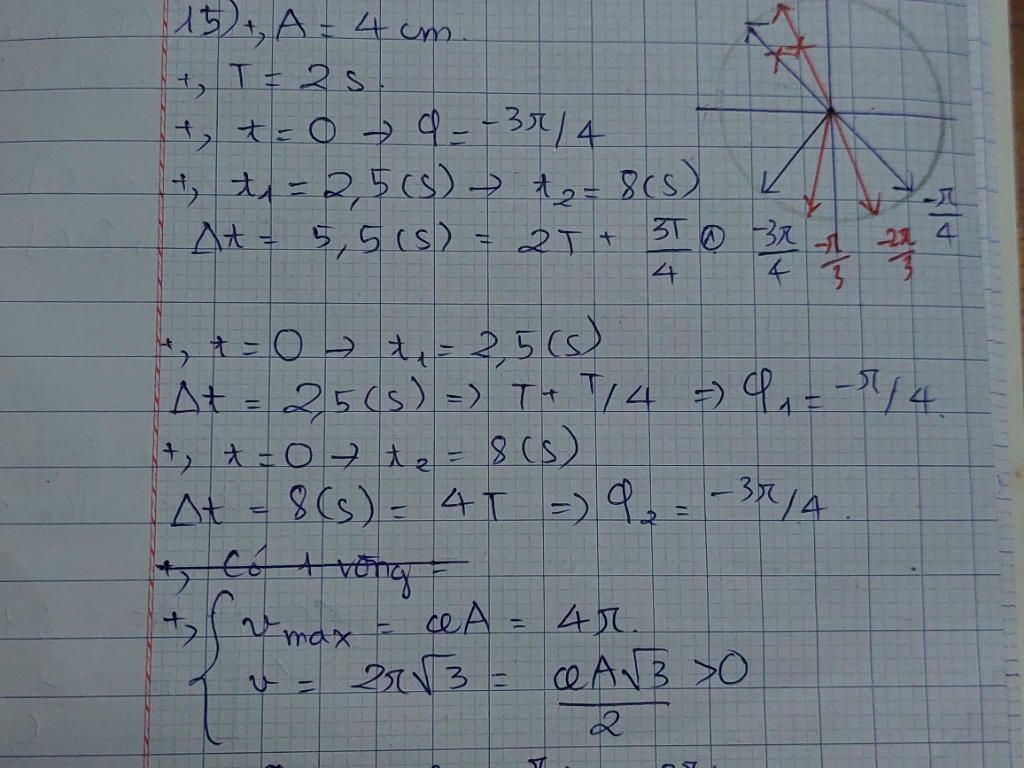 15) +, A = 4 cm.
+, T = 2 s.
+, t = 0 → φ = -3π/4
+, t₁ = 2,5 (s) → t₂ = 8 (s)
Δt = 5,5 (s) = 2T + 3T/4
-3π/4 -π/3 -2π/3 -π/4
+, t = 0 → t₁ = 2,5 (s)
Δt = 2,5 (s) => T + T/4 => φ₁ = -π/4.
+, t = 0 → t₂ = 8 (s)
Δt = 8 (s) = 4T => φ₂ = -3π/4.
+, Có 1 vòng =
+, { v max = ωA = 4π.
v = 2π√3 = ωA√3/2 >0